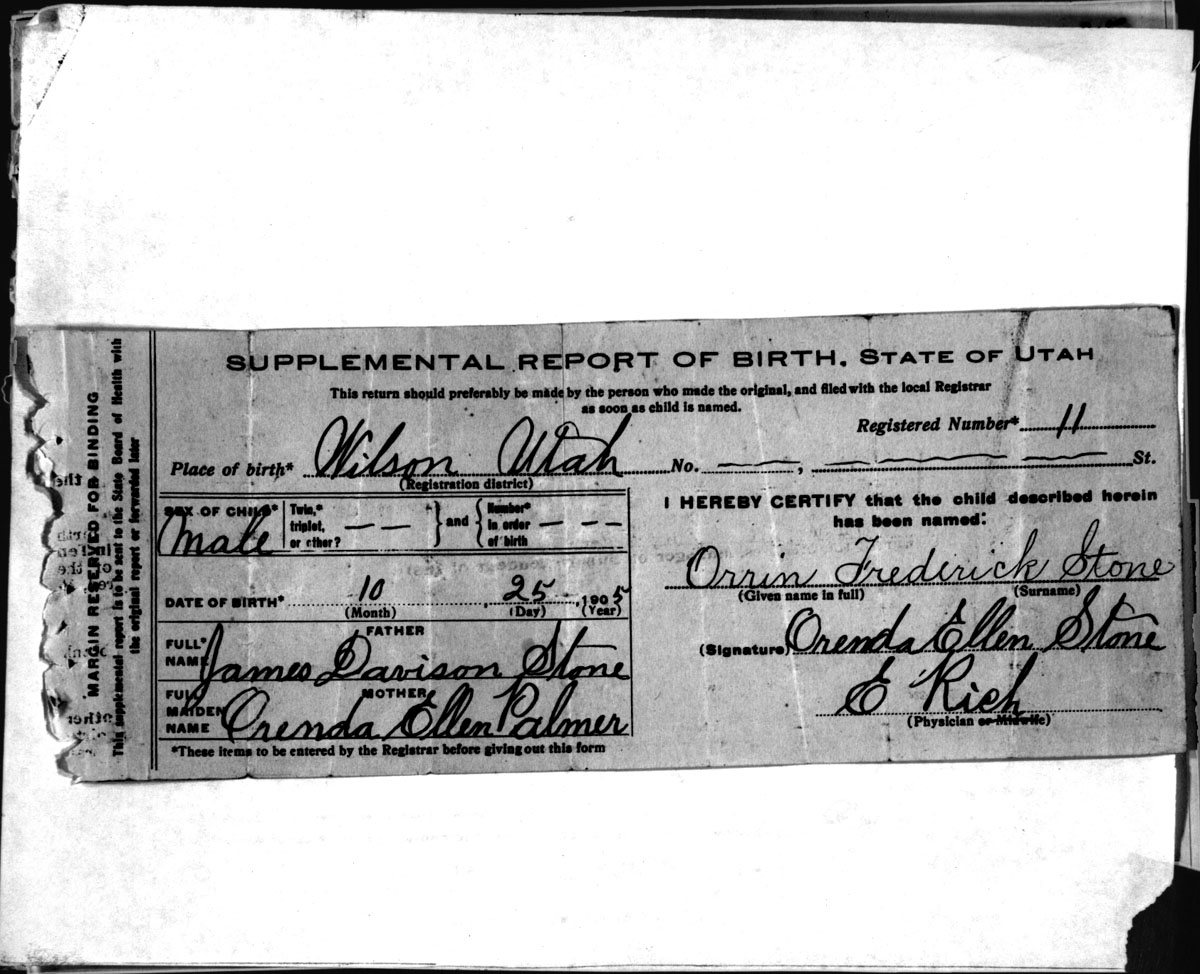 SUPPLEMENTAL REPORT OF BIRTH. STATE OF UTAH
This return should preferably be made by the person who made the original, and filed with the local Registrar
as soon as child is named.
Registered Number* 11
Place of birth* Wilson Utah No. , St.
(Registration district)
SEX OF CHILD* Male
Twin,* triplet, or other? — — } and { Number* in order of birth — — —
DATE OF BIRTH* 10 25 , 1905
(Month) (Day) (Year)
FATHER
FULL* NAME James Davison Stone
MOTHER
FULL MAIDEN NAME Orenda Ellen Palmer
*These items to be entered by the Registrar before giving out this form
I HEREBY CERTIFY that the child described herein
has been named:
Orrin Frederick Stone
(Given name in full) (Surname)
(Signature) Orenda Ellen Stone
E Rich
(Physician or Midwife)
MARGIN RESERVED FOR BINDING
This supplemental report is to be sent to the State Board of Health with
the original report or forwarded later